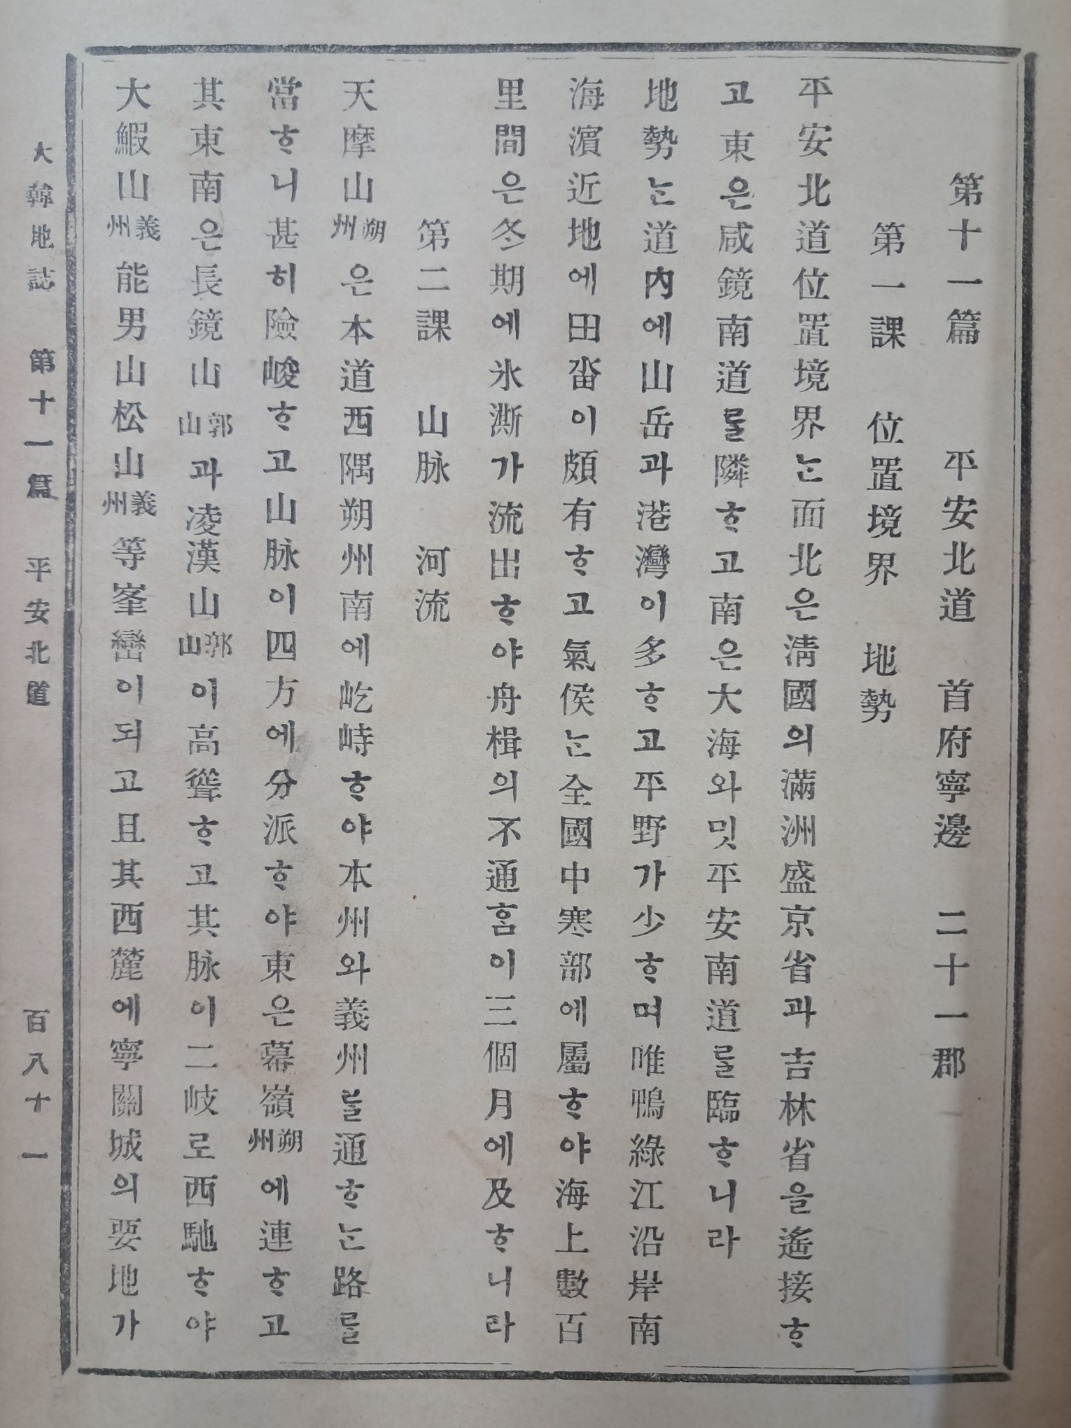 第十一篇 平安北道 首府寧邊 二十一郡
第一課 位置境界 地勢
平安北道位置境界ᄂᆞᆫ面北은淸國의滿洲盛京省과吉林省을遙接ᄒᆞ
고東은咸鏡南道ᄅᆞᆯ隣ᄒᆞ고南은大海와밋平安南道ᄅᆞᆯ臨ᄒᆞ니라
地勢ᄂᆞᆫ道內에山岳과港灣이多ᄒᆞ고平野가少ᄒᆞ며唯鴨綠江沿岸南
海濱近地에田畓이頗有ᄒᆞ고氣侯ᄂᆞᆫ全國中寒部에屬ᄒᆞ야海上數百
里間은冬期에氷澌가流出ᄒᆞ야舟楫의不通홈이三個月에及ᄒᆞ니라
第二課 山脉 河流
天摩山朔州은本道西隅朔州南에屹峙ᄒᆞ야本州와義州ᄅᆞᆯ通ᄒᆞᄂᆞᆫ路ᄅᆞᆯ
當ᄒᆞ니甚히險峻ᄒᆞ고山脉이四方에分派ᄒᆞ야東은幕嶺朔州에連ᄒᆞ고
其東南은長鏡山郭山과凌漢山郭山이高聳ᄒᆞ고其脉이二岐로西馳ᄒᆞ야
大鰕山義州能男山松山義州等峯巒이되고且其西麓에寧關城의要地가
大韓地誌 第十一篇 平安北道 百八十一